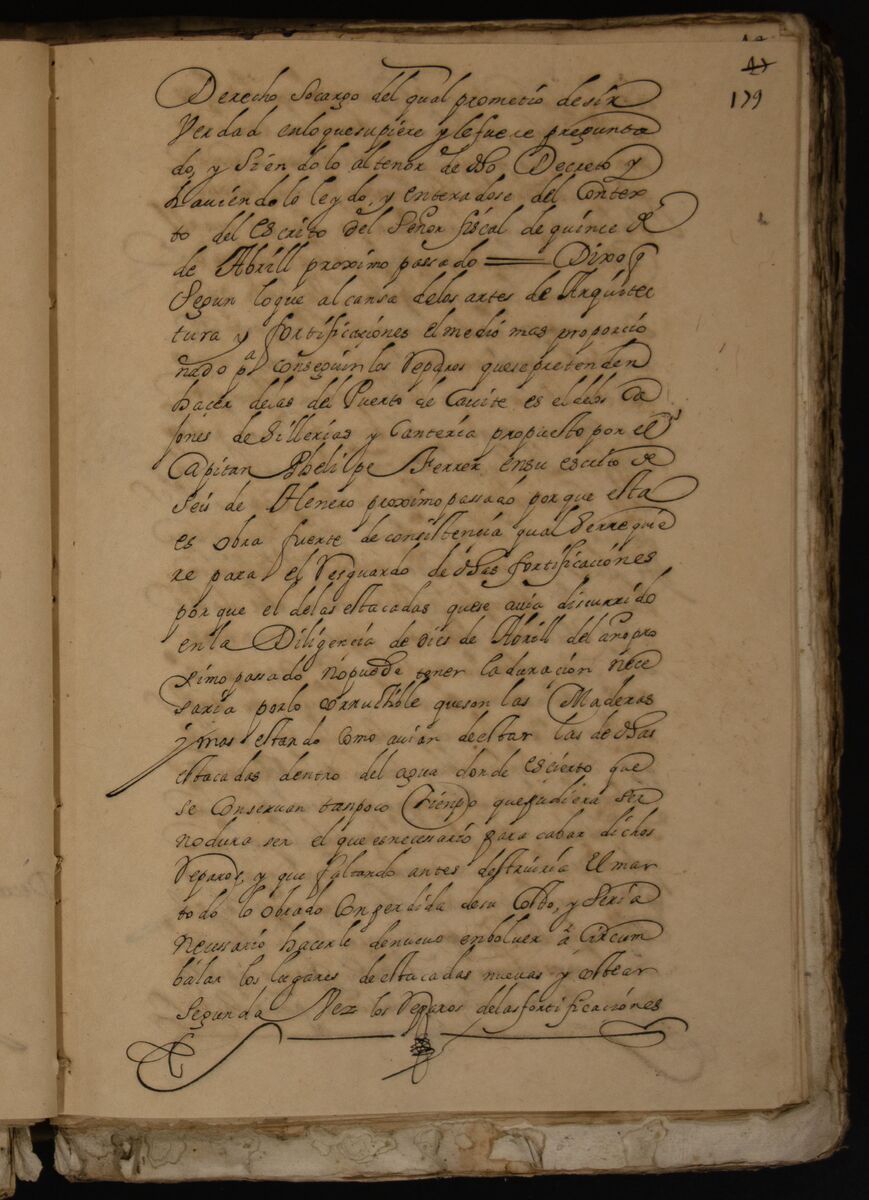 179
Derecho so cargo del qual prometio desir
Verdad en lo que supiere y le fuere pregunta
do, y Siendolo al tenor de dho Decreto y
hauiendolo leydo, y enteradose del Contex
to del escrito del Señor fiscal de quince
de Abrill proximo passado Dixo q
Segun lo que alcansa de los artes de Arquitec
tura y fortificaciones el medio mas proporcio
nado pa conseguir los Reparos que se pretenden
hacer de las del Puerto de Cauite es el de los Ca
jones de Sillerias y Canteria propuesto por el
Capitan Phelipe Ferrer en su escrito de
Seis de Henero proximo passado por que esta
es obra fuerte de consistencia qual Se rrequie
re para el Resguardo de dhas fortificaciones
por que el de las estacadas que se auia discurrido
en la Diligencia de dies de Abrill del año pro
simo passado no puede tener la duracion nece
saria por lo corruthible que son las Maderas
y mas estando Como auian de estar las de dhas
estacadas dentro del agua donde es cierto que
se Conseruan tan poco Tiempo que pudiera ser
no dura ser el que es necesario para cabar dichos
Reparos, y que faltando antes destruiria El mar
todo lo obrado Con perdida de su Costo, y Seria
necessario hacerle de nueuo en boluer a Circum
balar los lugares de estacadas nueuas y costear
Segunda Vez los Reparos de las fortificaciones